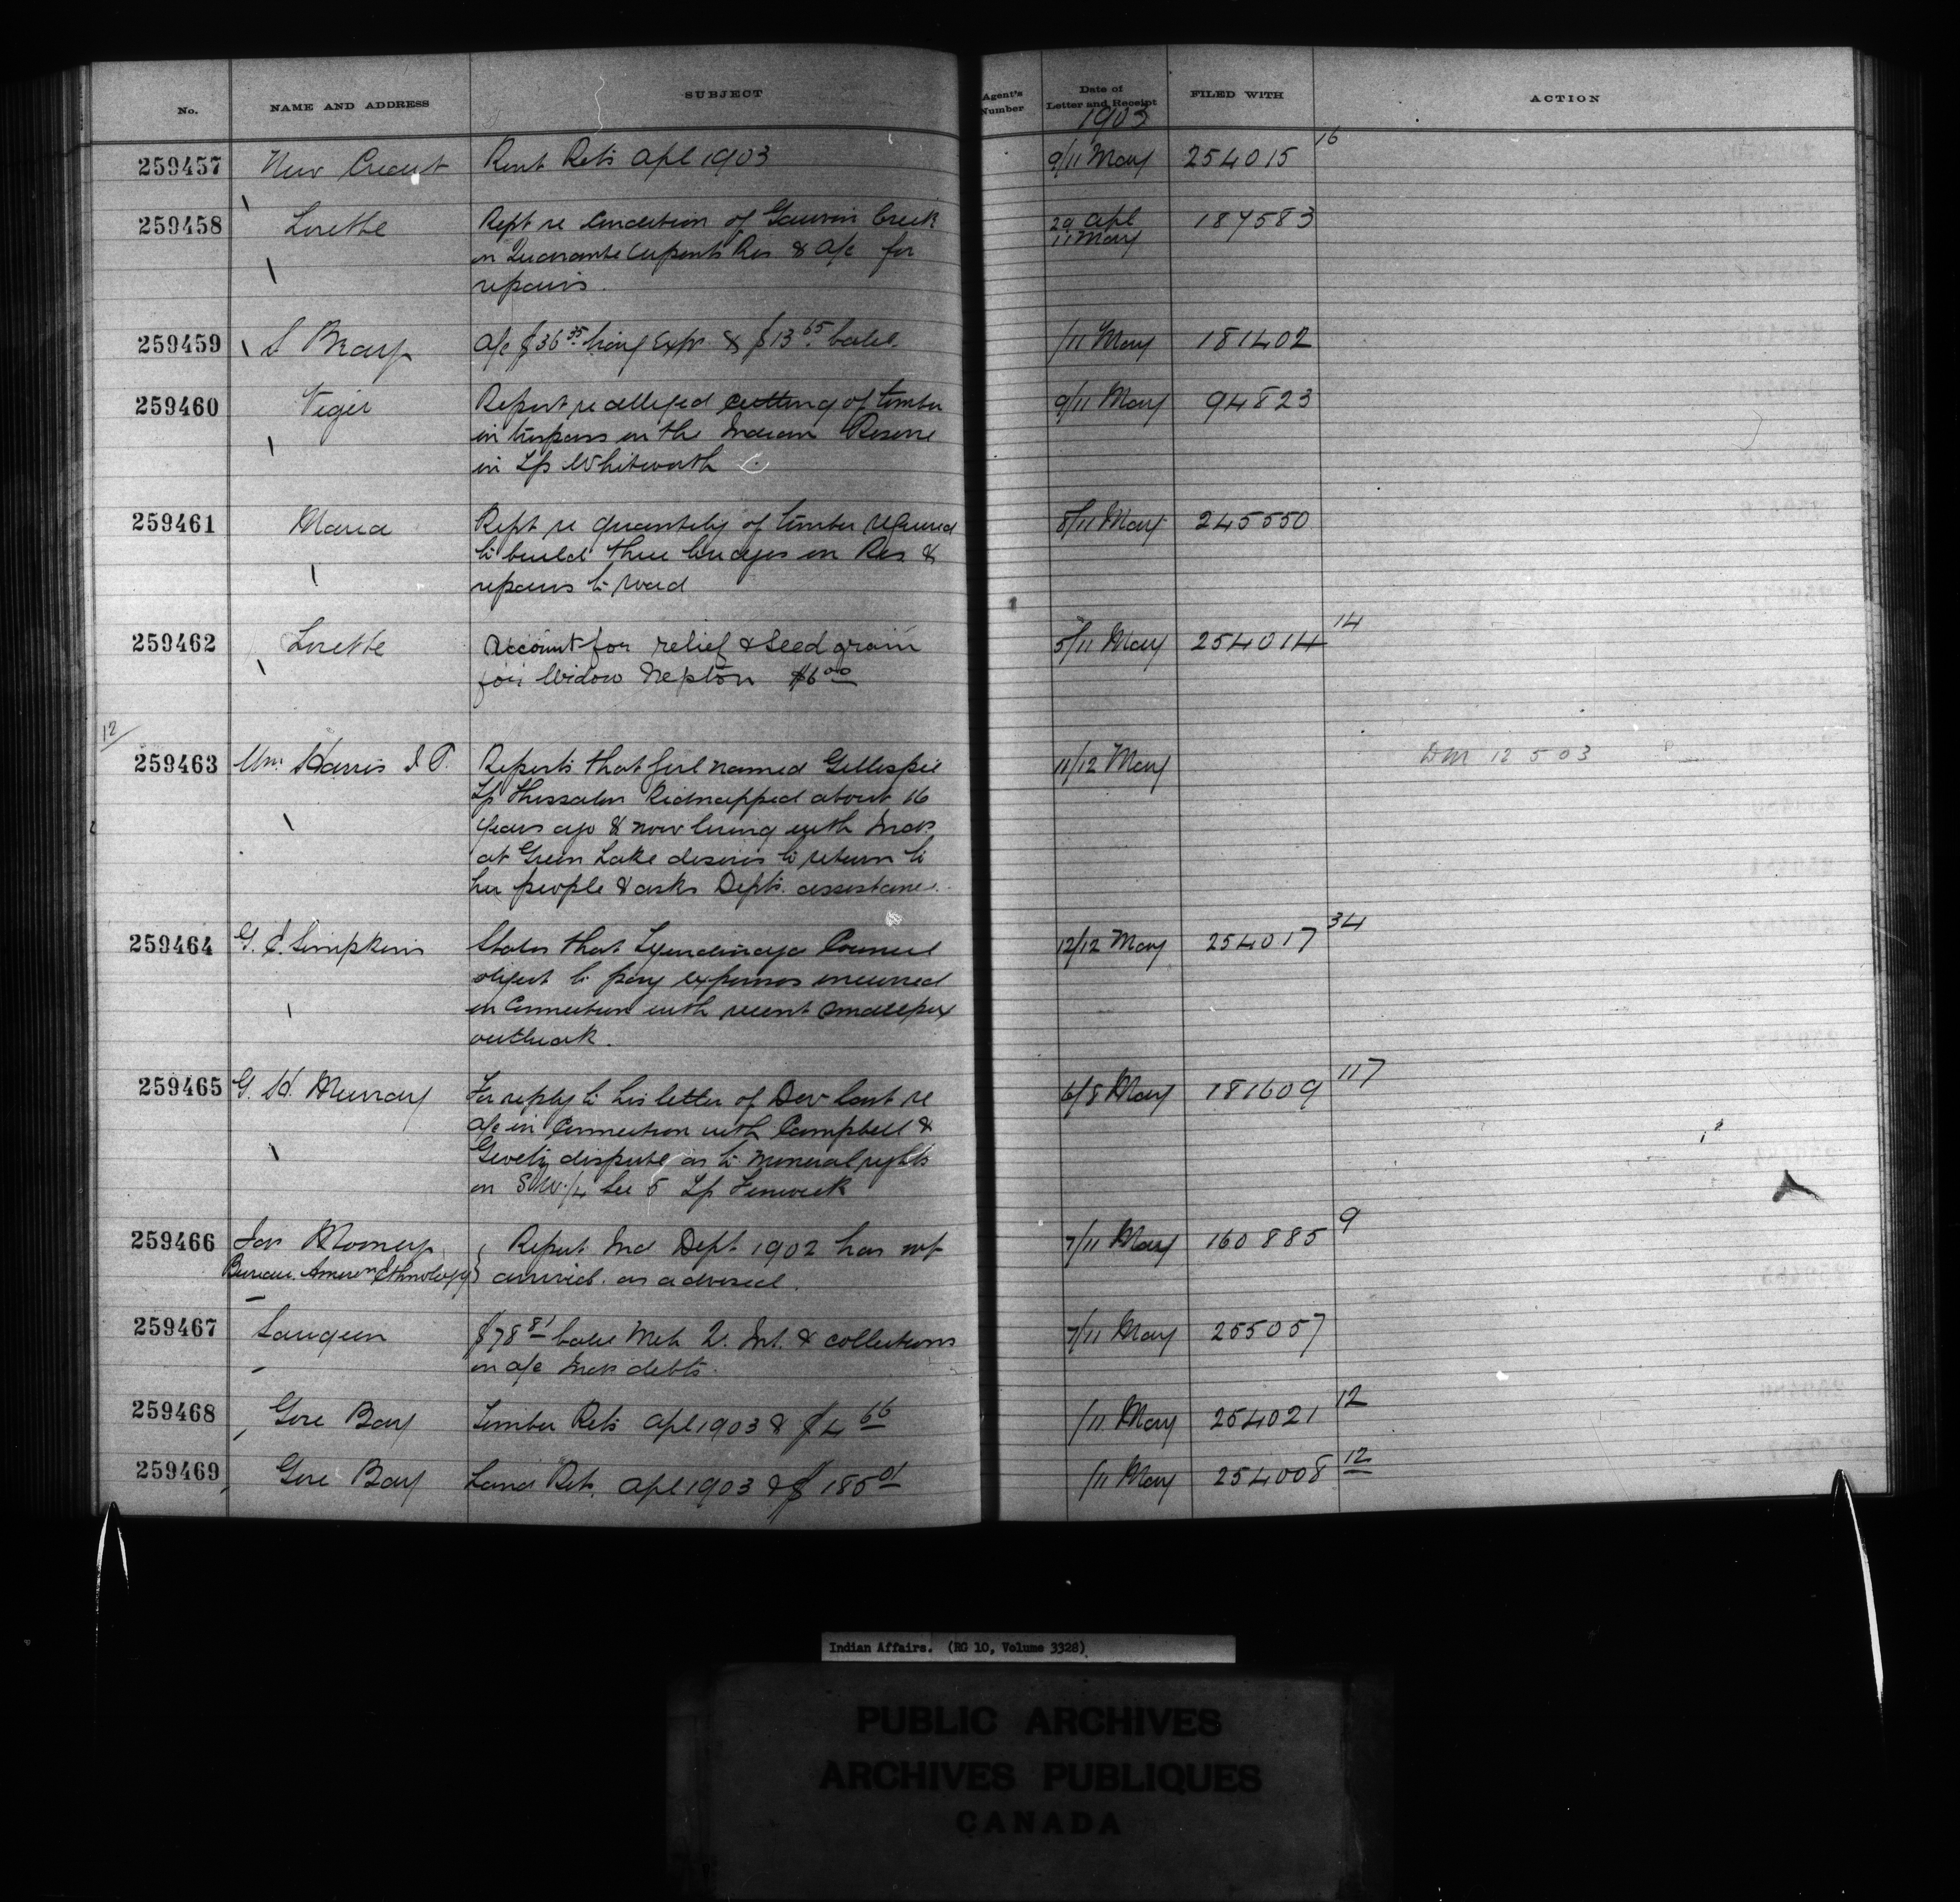 No. NAME AND ADDRESS SUBJECT Agent's Number Date of Letter and Receipt FILED WITH ACTION
1903
259457 New Credit Rent Rets Apl 1903 9/11 May 254015 16
259458 Lorette Rept re Condition of Gauvin Creek 29 Apl 187583
on Quarante Arpents Res & a/c for 11 May
repairs.
259459 S Bray a/c $36 35 living Exps & $13 65 balce. /11 May 181402
259460 Viger Report re alleged cutting of timber 9/11 May 94823
in trespass on the Indian Reserve
in Tp Whitworth
259461 Maria Rept re quantity of timber required 8/11 May 245550
to build three bridges on Res &
repairs to road
259462 Lorette Account for relief & Seed grain 5/11 May 254014 14
for Widow Nepton $6 00
12/
259463 Wm Harris I.P. Reports that girl named Gillespie 11/12 May DM 12 5 03
Tp Thessalon Kidnapped about 16
years ago & now living with Inds
at Green Lake desires to return to
her people & asks Depts. assistance.
259464 G. C. Simpkins States that Tyendinaga Council 12/12 May 254017 34
object to pay expenses incurred
in Connection with recent smallpox
outbreak.
259465 G. H. Murray For reply to his letter of Dec last re 6/8 May 181609 117
a/c in Connection with Campbell &
dispute as to mineral rights
on SW 1/4 Sec 5 Tp Fenwick
259466 Jas Mooney Report Ind Dept 1902 has not 7/11 May 160885 9
Bureau Amercn Ethnology arrived as advised.
259467 Saugeen $78 81 balce Meh 2. Int. & collections 7/11 May 255057
on a/c Inds debts.
259468 Gore Bay Timber Rets Apl 1903 & $4 66 /11 May 254021 12
259469 Gore Bay Land Rets. Apl 1903 & $185 01 /11 May 254008 12
Indian Affairs. (RG 10, Volume 3328)
PUBLIC ARCHIVES
ARCHIVES PUBLIQUES
CANADA